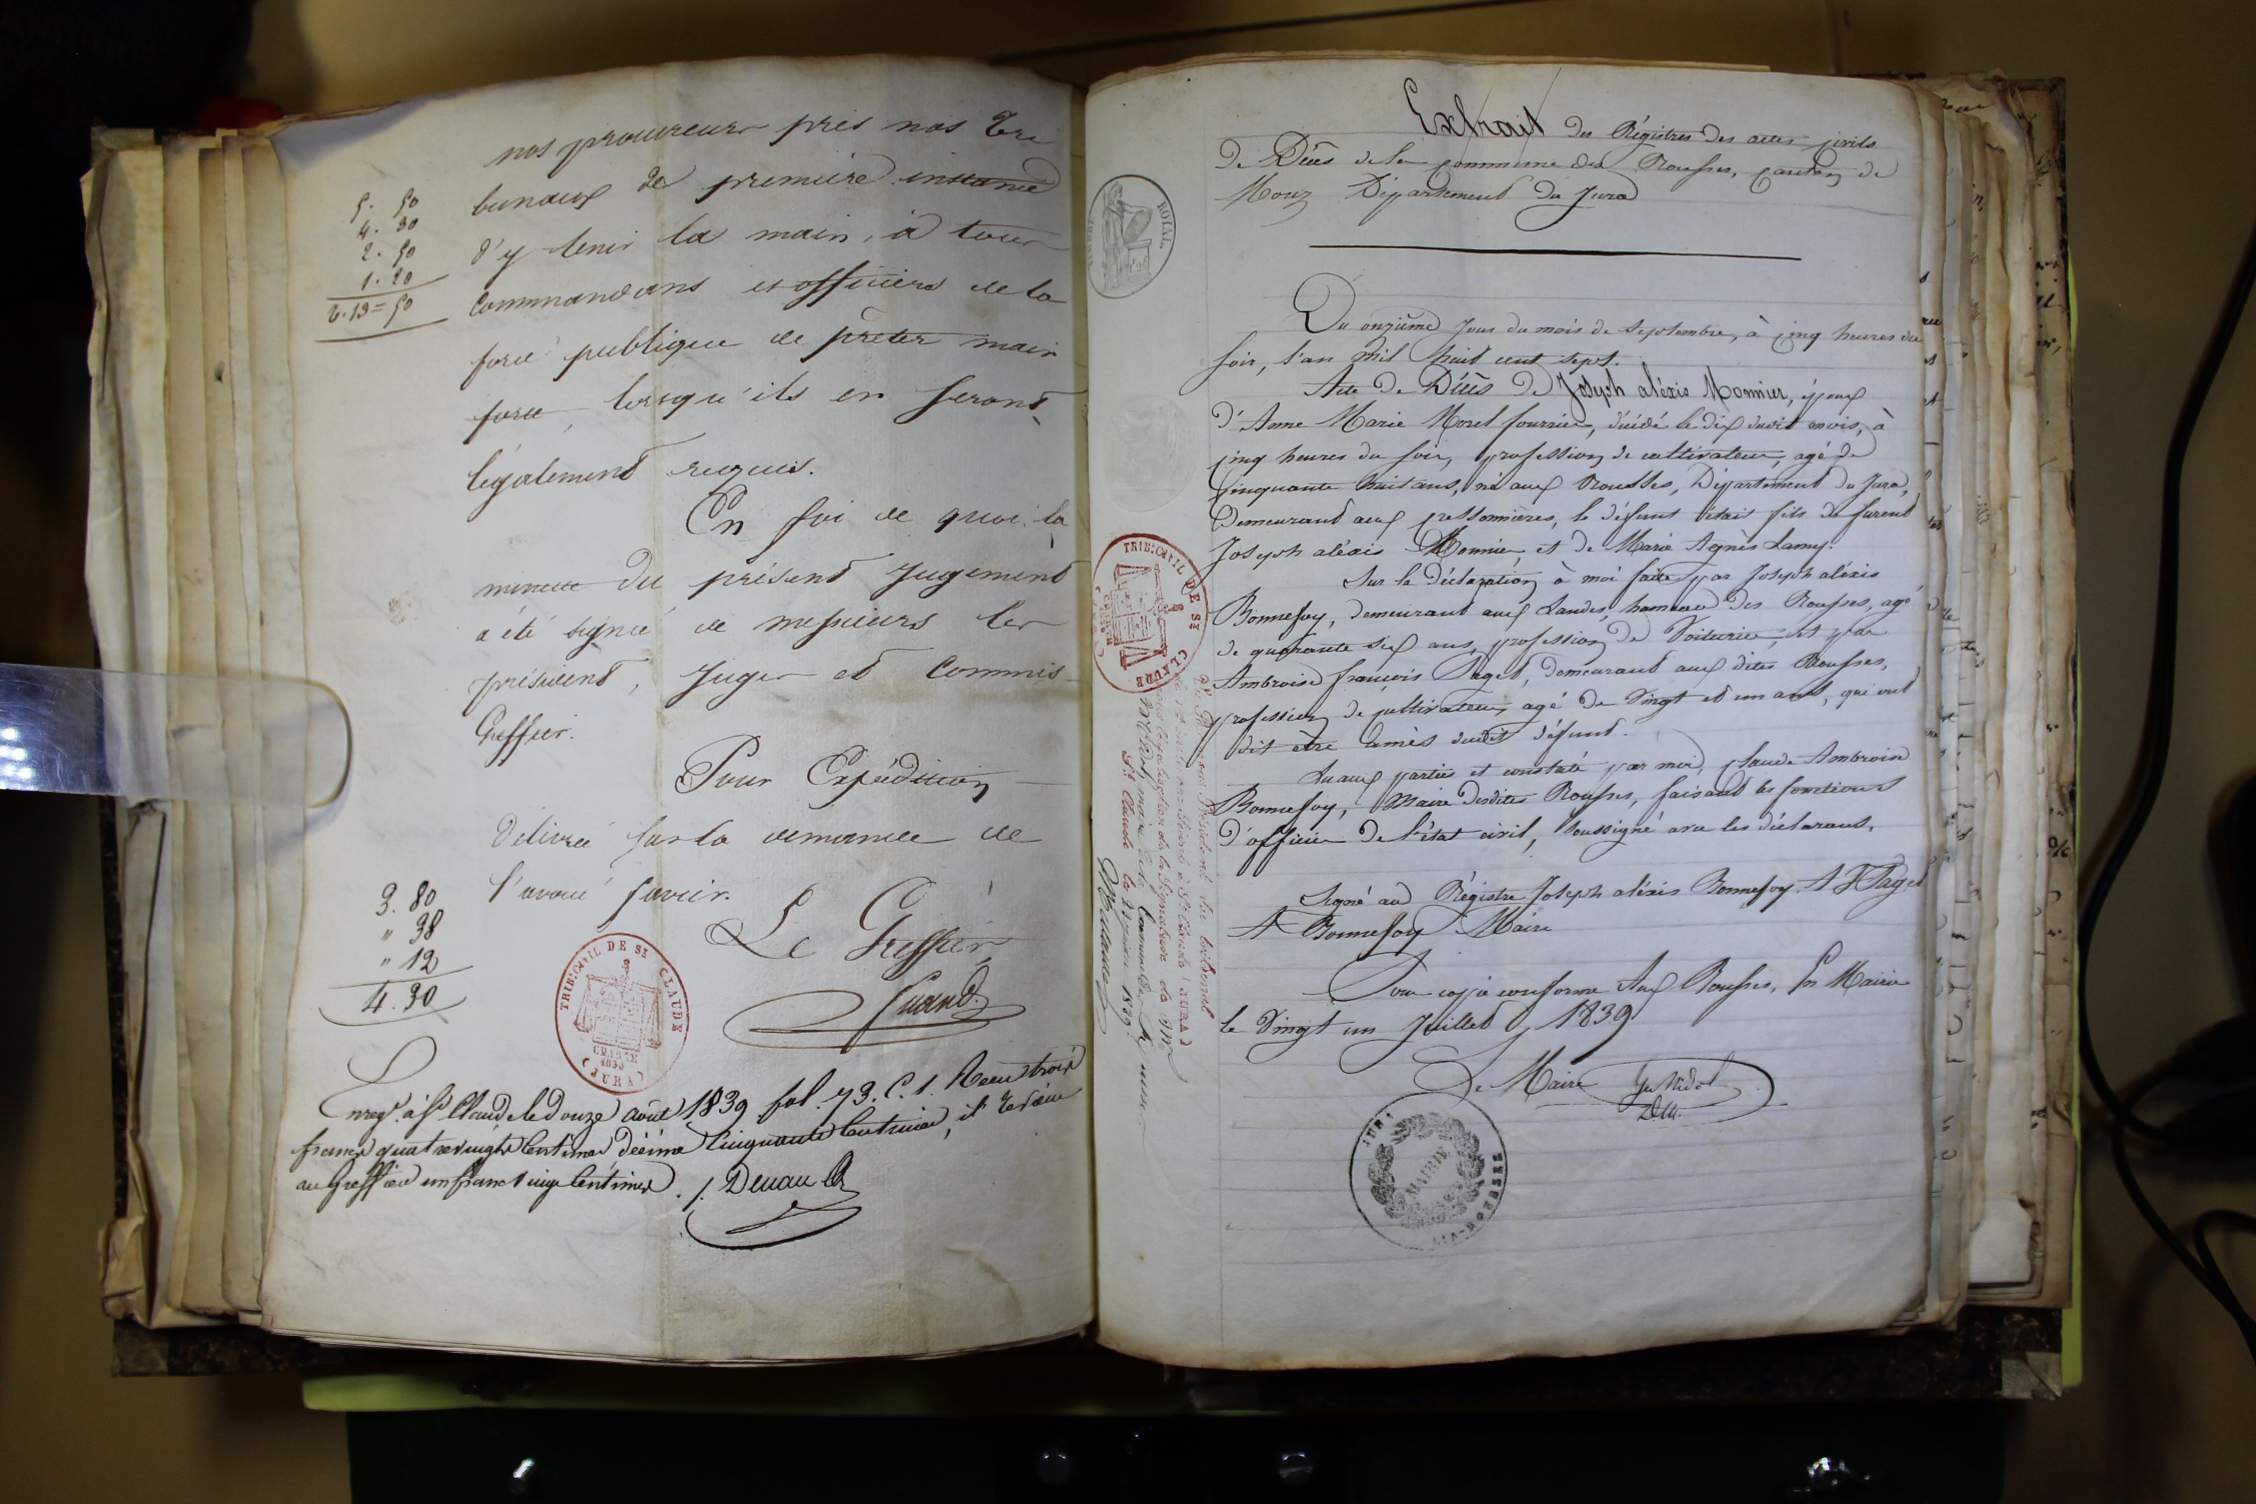 nos procureurs près nos Tri
bunaux de première instance
d'y tenir la main, à tous
commandans et officiers de la
force publique de prêter main
forte, lorsqu'ils en seront
légalement requis.
En foi de quoi la
minute du présent jugement
a été signée de messieurs les
président, juges et commis
Greffier.
Pour Expédition
délivrée sur la demande de
l'avoué favier.
Le Greffier
5. 50
4. 30
2. 50
1. 20
3. 80
" 38
" 12
4. 30
TRIB: CIVIL DE St CLAUDE
(JURA)
Enreg.t à St Claude le douze août 1839 fol. 73. C. 1. Reçu trois
francs quatrevingts Centimes décime Cinquante Centimes, il revient
au greffier un franc vingt Centimes.
Extrait des Régistres des actes civils
de Décès de la commune des Rousses, canton de
Morez Département du Jura
TIMBRE ROYAL
Du onzième jour du mois de septembre, à cinq heures du
soir, l'an mil huit cent sept.
Acte de Décès de Joseph aléxis Monnier, époux
d'Anne Marie Morel fourrier, décédé le dix dudit mois, à
cinq heures du soir, profession de cultivateur, agé de
Cinquante huit ans, né aux Rousses, Département du Jura,
Demeurant aux cressonnières, le défunt était fils de furent
Joseph aléxis Monnier, et de Marie Agnès Lamy.
Sur la déclaration à moi faite par Joseph aléxis
Bonnefoy, demeurant aux Landes, hameau des Rousses, agé
de quarante six ans, profession de Voiturier, et par
Ambroise françois Paget, demeurant aux dites Rousses,
profession de cultivateur, agé de Vingt et un ans, qui ont
dit être amis dudit défunt.
Lu aux parties et constaté par moi, claude Ambroise
Bonnefoy, Maire desdites Rousses, faisant les fonctions
d'officier de l'état civil, soussigné avec les déclarans.
Signé au Régistre Joseph aléxis Bonnefoy. A F Paget
A Bonnefoy Maire
Pour copie conforme Aux Rousses, En Mairie
le Vingt un Juillet 1839
Le Maire
TRIB: CIVIL DE St CLAUDE
MAIRIE
JURA